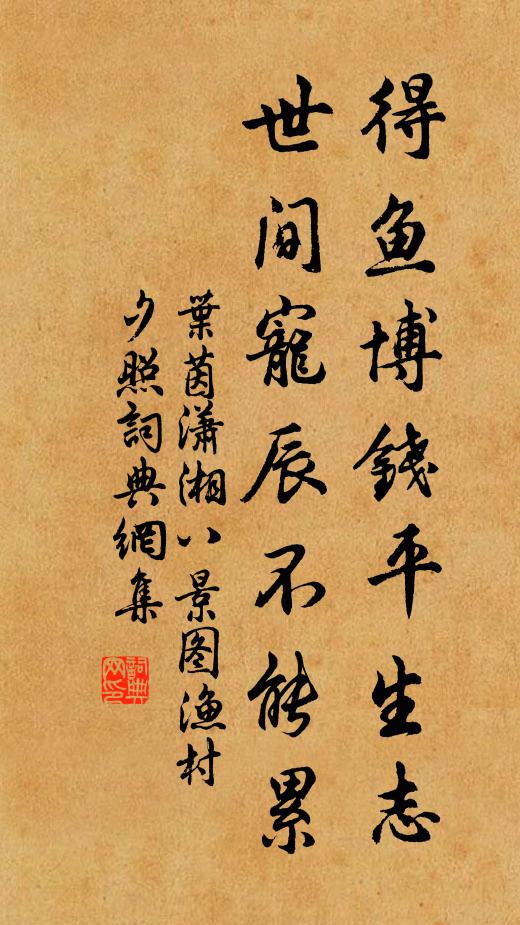 得鱼博錢平生志
世间寵辰不能累
葉茵潇湘八景图漁村
夕照詞典網集
詞典网印